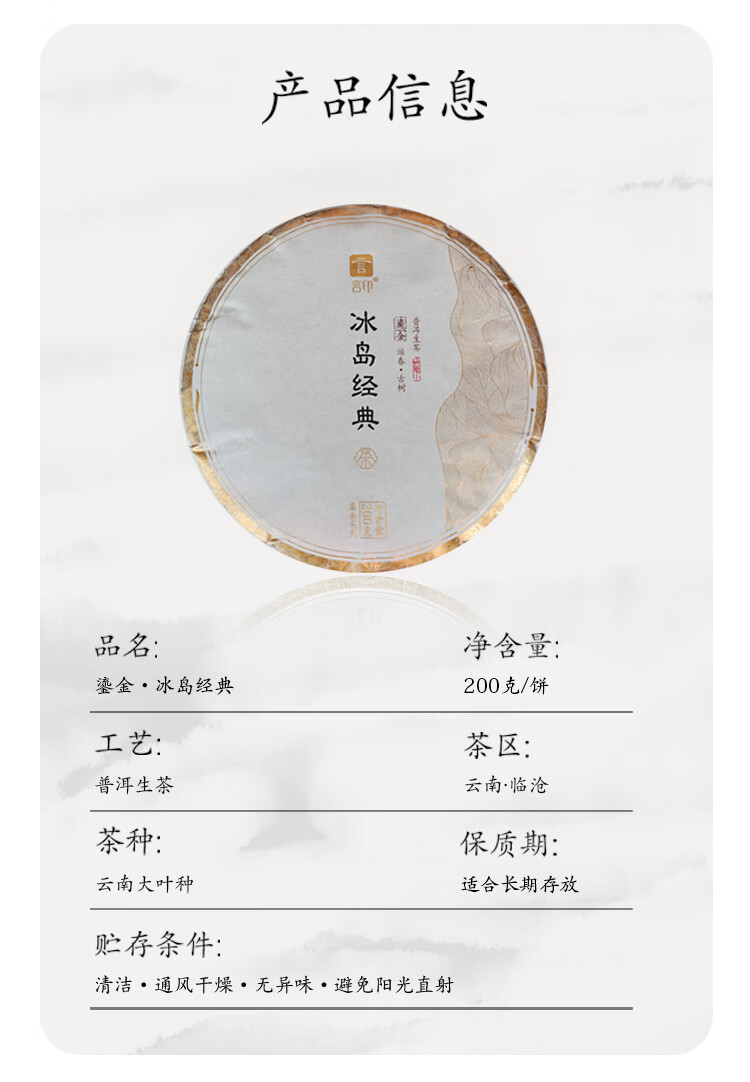 产品信息
言
言印®
冰岛经典
普洱生茶
鎏金
头春·古树
茶
净含量
200克
品名:
鎏金·冰岛经典
净含量:
200克/饼
工艺:
普洱生茶
茶区:
云南·临沧
茶种:
云南大叶种
保质期:
适合长期存放
贮存条件:
清洁·通风干燥·无异味·避免阳光直射